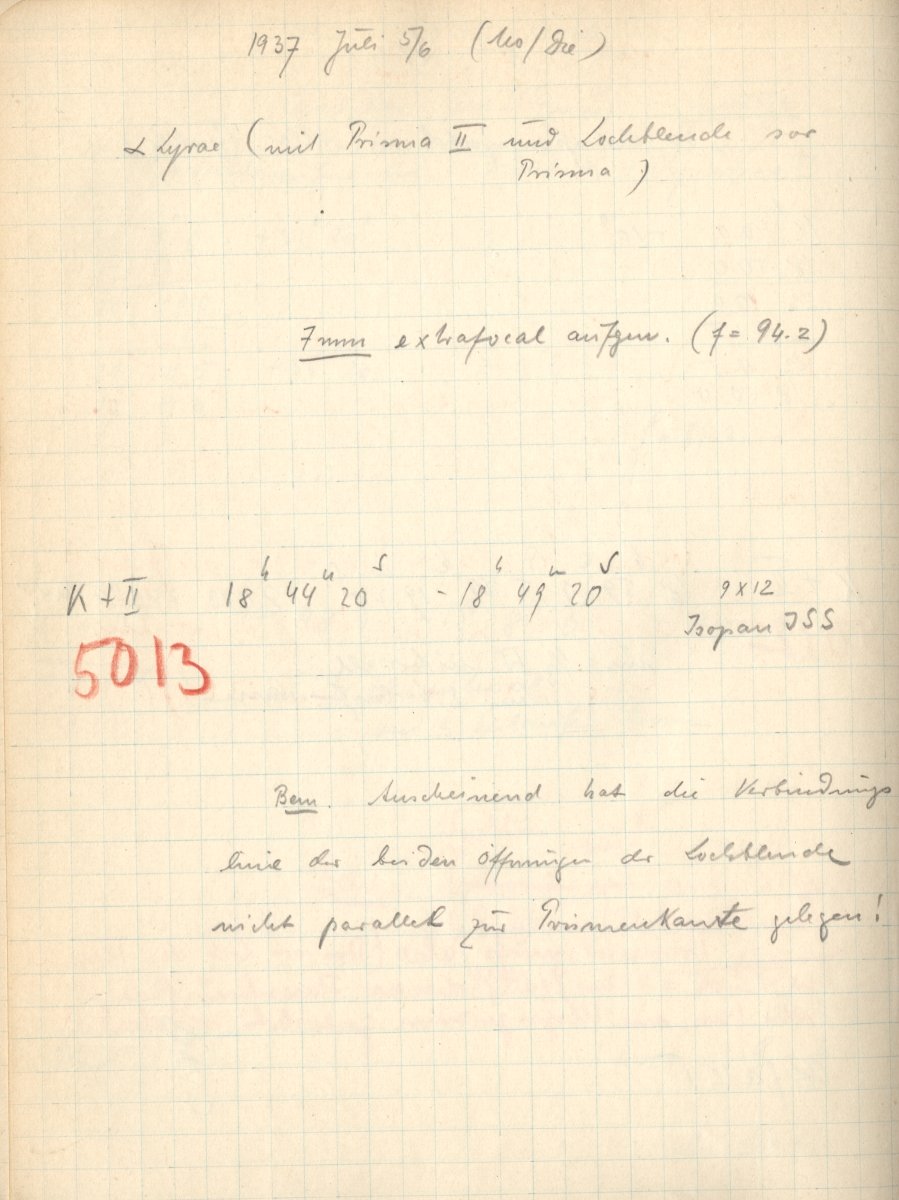 1937 Juli 5/6 (Mo/Die)
α Lyrae (mit Prisma II und Lochblende vor
Prisma)
7mm extrafocal aufgen. (f = 94.2)
K + II 18h 44m 20s - 18h 49m 20s 9 x 12
Isopan ISS
5013
Bem. Anscheinend hat die Verbindungs
linie der beiden Öffnungen der Lochblende
nicht parallel zur Prismenkante gelegen!